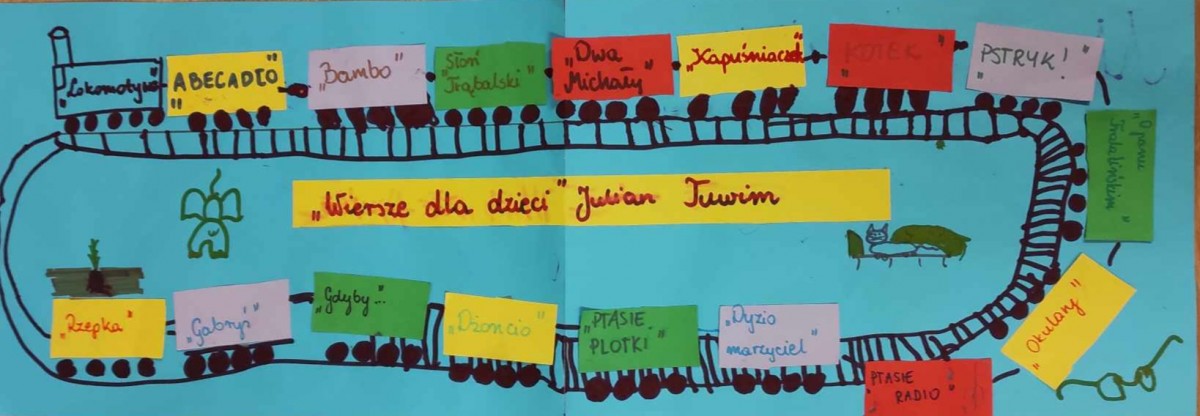 „Lokomotywa"
„ABECADŁO"
„Bambo"
„Słoń
Trąbalski"
„Dwa
Michały"
„Kapuśniaczek"
„KOTEK"
„PSTRYK!"
„O panu
Tralalińskim"
„Okulary"
„PTASIE
RADIO"
„Dyzio
marzyciel"
„PTASIE
PLOTKI"
„Dżoncio"
„Gdyby..."
„Gabryś"
„Rzepka"
„Wiersze dla dzieci" Julian Tuwim